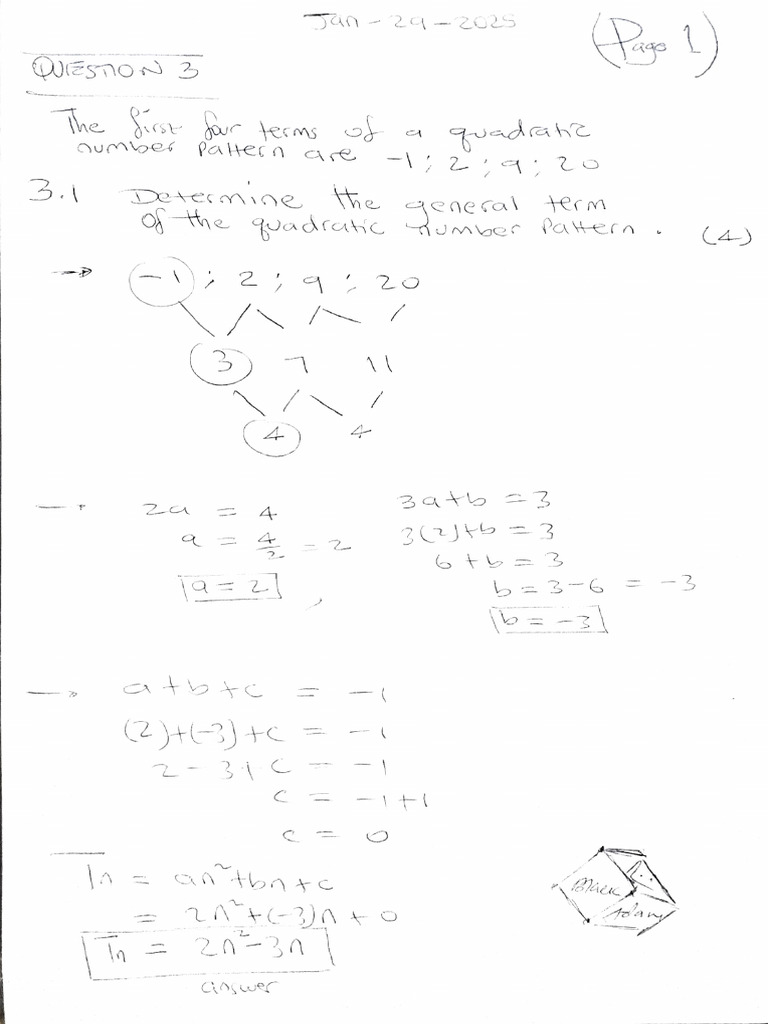 Jan-29-2025
(Page 1)
QUESTION 3
The first four terms of a quadratic
number pattern are -1 ; 2 ; 9 ; 20
3.1 Determine the general term
of the quadratic number pattern. (4)
→ -1 ; 2 ; 9 ; 20
3 7 11
4 4
→ 2a = 4 3a+b = 3
a = 4/2 = 2 3(2)+b = 3
6+b = 3
a = 2 , b = 3-6 = -3
b = -3
→ a+b+c = -1
(2)+(-3)+c = -1
2-3+c = -1
c = -1+1
c = 0
Tn = an²+bn+c
= 2n²+(-3)n+0
Tn = 2n²-3n
answer
Black
Adam